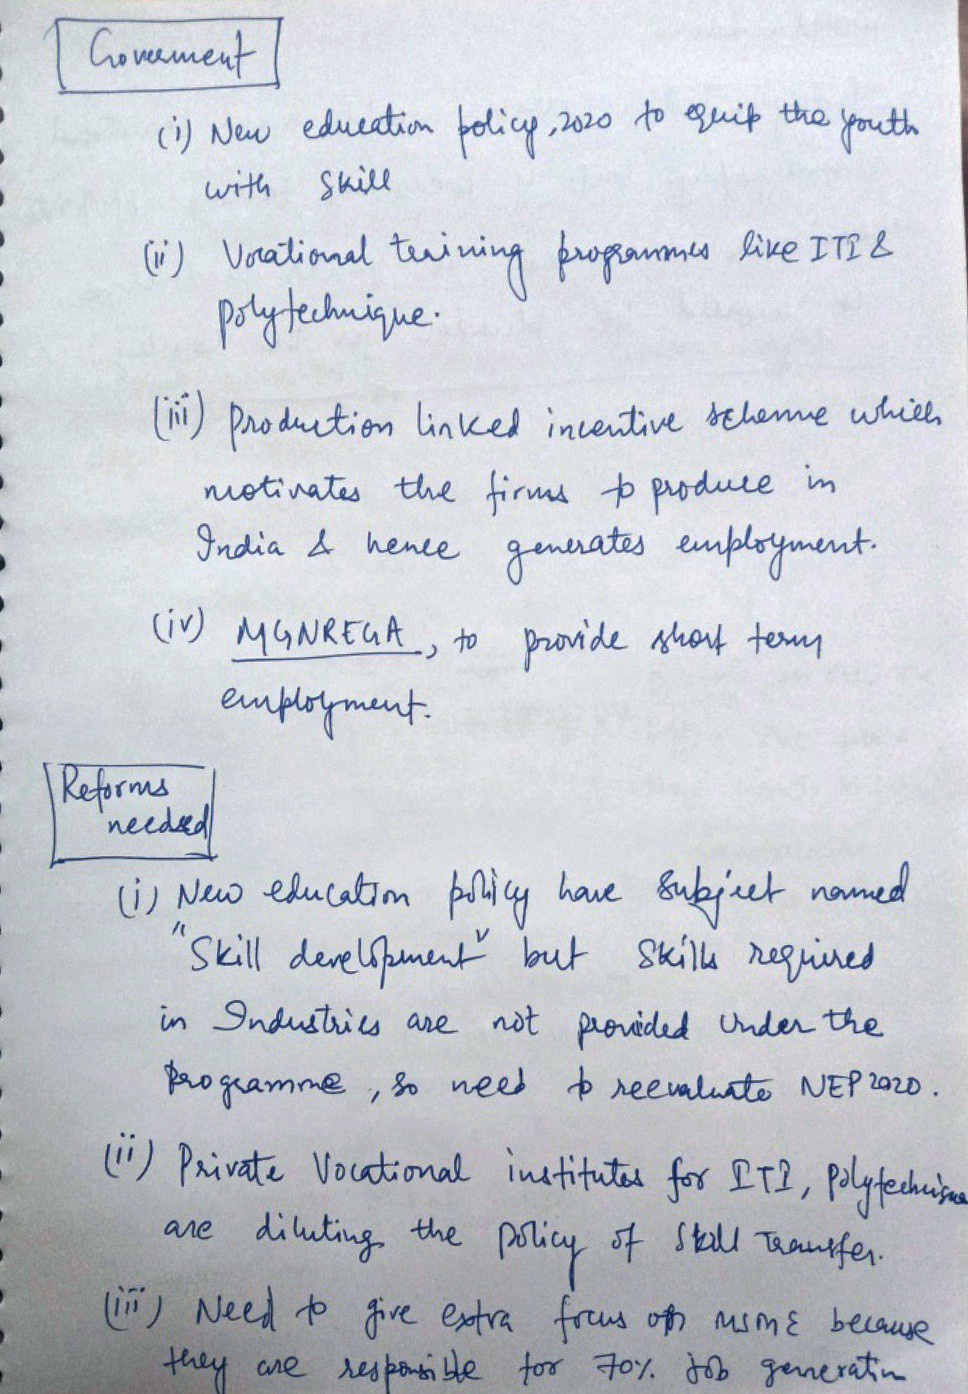 Goverment
(i) New education policy, 2020 to equip the youth
with skill
(ii) Vocational training programmes like ITI &
polytechnique.
(iii) Production linked incentive scheme which
motivates the firms to produce in
India & hence generates employment.
(iv) MGNREGA, to provide short term
employment.
Reforms
needed
(i) New education policy have subject named
"Skill development" but skills required
in Industries are not provided under the
programme, so need to reevaluate NEP 2020.
(ii) Private Vocational institutes for ITI, polytechnique
are diluting the policy of skill transfer.
(iii) Need to give extra focus on MSME because
they are responsible for 70% job generation